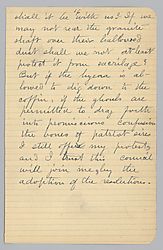 shall it be with us? If we
may not rear the granite
shaft over their hallowed
dust shall we not at least
protect it from sacrilege?
But if the hyena is al-
lowed to dig down to the
coffin, if the ghouls are
permitted to drag forth
into promiscuous confusion
the bones of patriot sires
I still offer my protest,
and I trust this council
will join me by the
adoption of the resolutions.